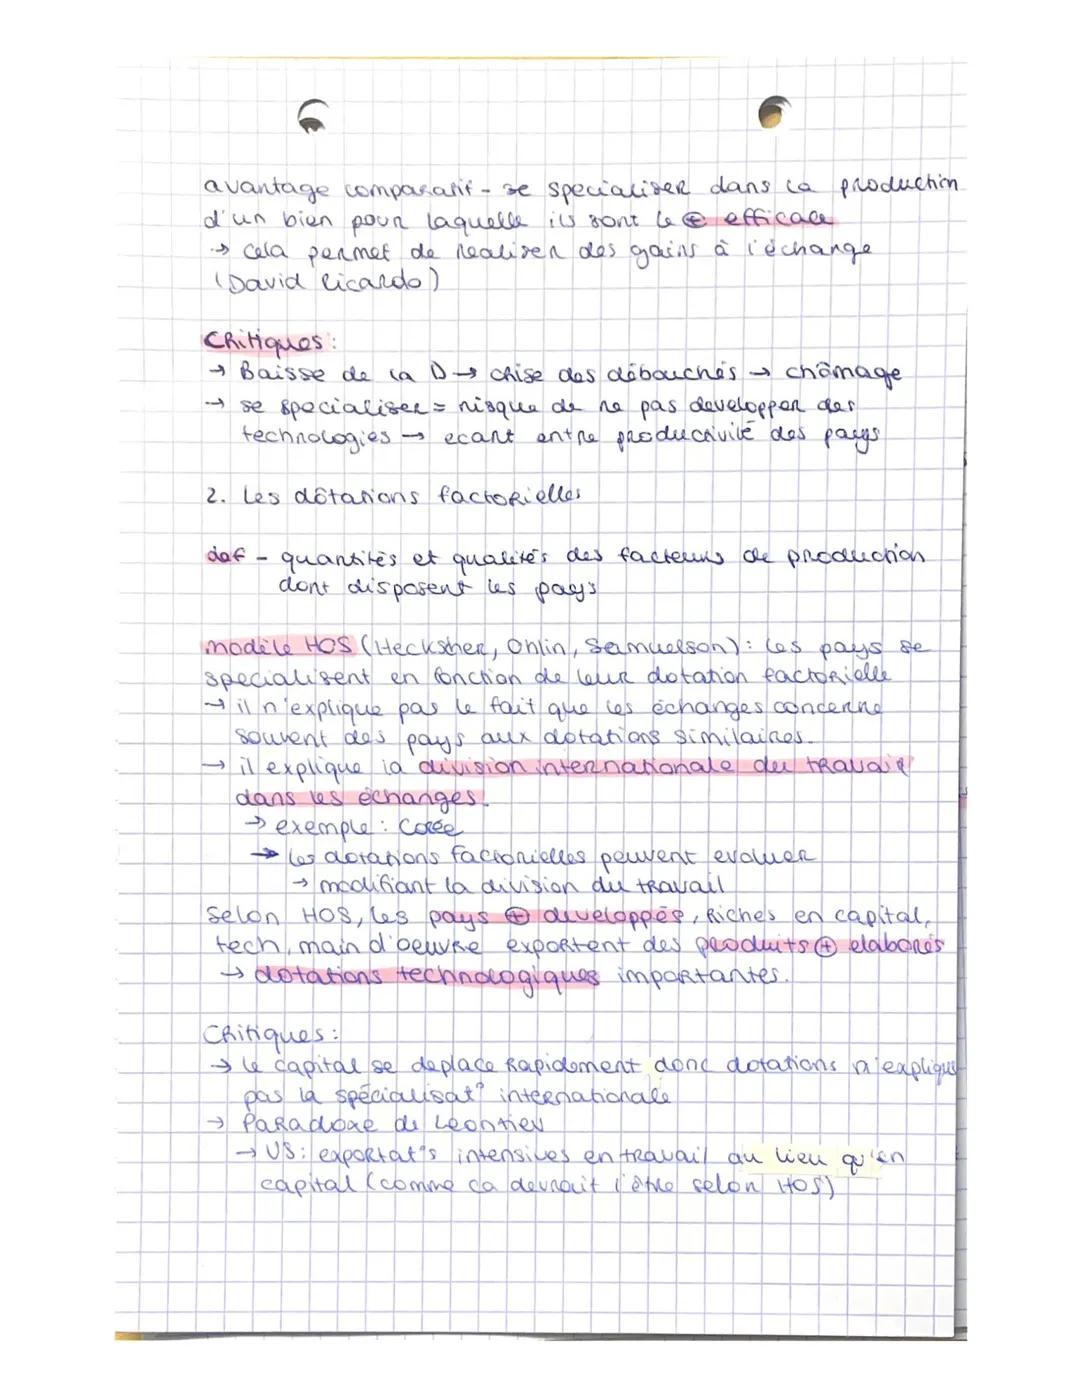 avantage comparatif - se specialiser dans la production
d'un bien pour laquelle ils sont le ⊕ efficace
→ cela permet de realiser des gains à l'échange
(David Ricardo)
Critiques :
→ Baisse de la D → crise des débouchés → chômage
→ se specialiser = risque de ne pas developper des
technologies → ecart entre productivité des pays
2. Les dôtations factorielles
def - quantités et qualités des facteurs de production
dont disposent les pays
modèle HOS (Hecksher, Ohlin, Samuelson) : les pays se
specialisent en fonction de leur dotation factorielle
→ il n'explique pas le fait que les échanges concerne
souvent des pays aux dotations similaires.
→ il explique la division internationale du travail
dans les échanges.
→ exemple : Corée
→ les dotations factorielles peuvent evoluer
→ modifiant la division du travail
Selon HOS, les pays ⊕ developpés, riches en capital,
tech, main d'oeuvre exportent des produits ⊕ elaborés
→ dotations technologiques importantes.
Critiques :
→ le capital se deplace rapidement donc dotations n'explique
pas la spécialisat° internationale
→ Paradoxe de Leontiev
→ US : exportat°s intensives en travail au lieu qu'en
capital (comme ça devrait l'être selon HOS)